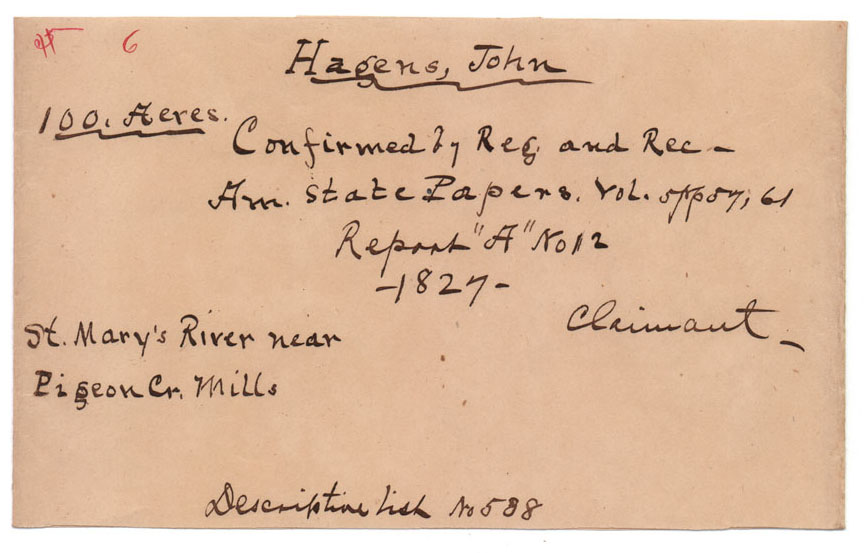 H 6
Hagens, John
100. Acres.
Confirmed by Reg. and Rec -
Am. State Papers. Vol. 5 pp 57, 61
Report "A" No 12
- 1827 -
Claimant -
St. Mary's River near
Pigeon Cr. Mills
Descriptive list No 588